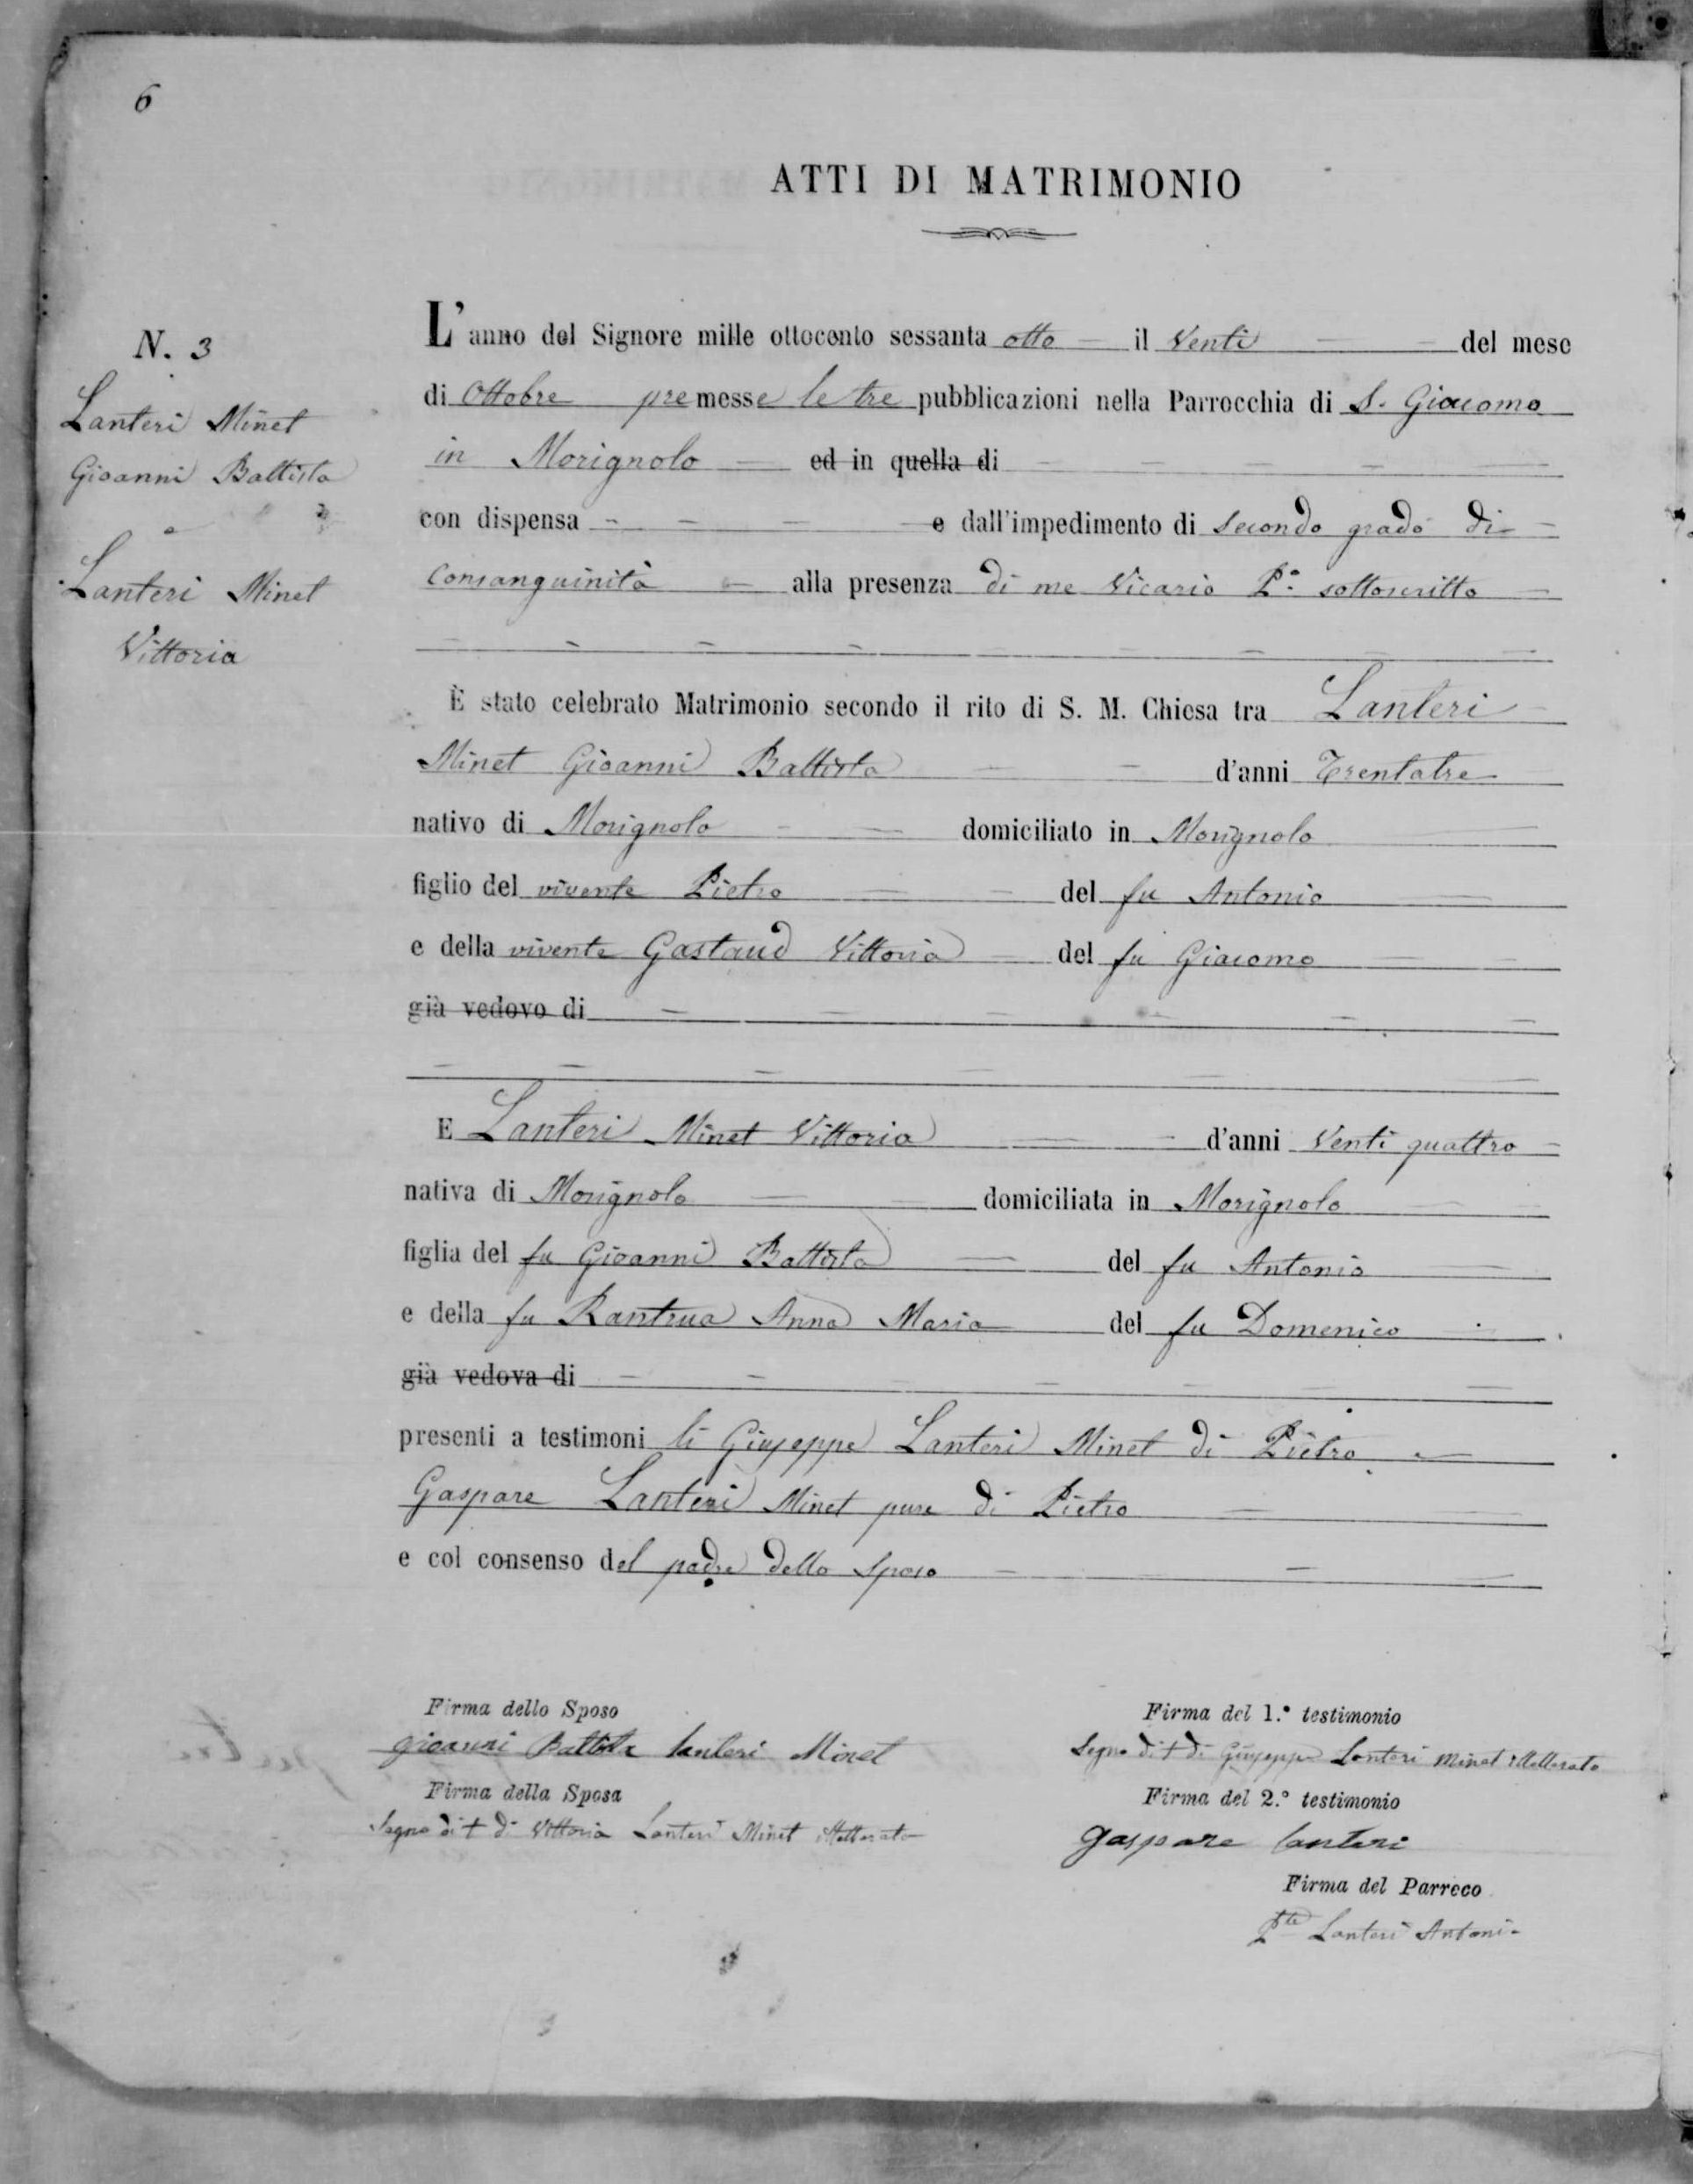 6
ATTI DI MATRIMONIO
N. 3
Lanteri Minet
Gioanni Battista
e
Lanteri Minet
Vittoria
L'anno del Signore mille ottocento sessanta otto il Venti del mese
di Ottobre premesse le tre pubblicazioni nella Parrocchia di S. Giacomo
in Morignolo ed in quella di
con dispensa e dall'impedimento di secondo grado di
Consanguinità alla presenza di me Vicario P.º sottoscritto
È stato celebrato Matrimonio secondo il rito di S. M. Chiesa tra Lanteri
Minet Gioanni Battista d'anni Trentatre
nativo di Morignolo domiciliato in Morignolo
figlio del vivente Pietro del fu Antonio
e della vivente Gastaud Vittoria del fu Giacomo
già vedovo di
E Lanteri Minet Vittoria d'anni Venti quattro
nativa di Morignolo domiciliata in Morignolo
figlia del fu Gioanni Battista del fu Antonio
e della fu Rantrua Anna Maria del fu Domenico
già vedova di
presenti a testimoni li Giuseppe Lanteri Minet di Pietro e
Gaspare Lanteri Minet pure di Pietro
e col consenso del padre dello Sposo
Firma dello Sposo
gioanni Battista lanteri Minet
Firma della Sposa
Segno di + di Vittoria Lanteri Minet illetterata
Firma del 1.º testimonio
Segno di + di Giuseppe Lanteri Minet illetterato
Firma del 2.º testimonio
gaspare lanteri
Firma del Parroco
P.te Lanteri Antonio